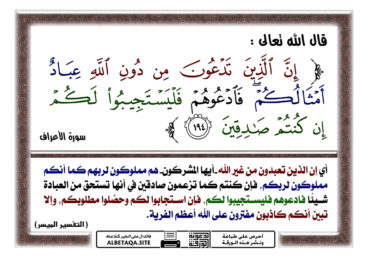 قال الله تعالى :
﴿ إِنَّ ٱلَّذِينَ تَدۡعُونَ مِن دُونِ ٱللَّهِ عِبَادٌ
أَمۡثَالُكُمۡۖ فَٱدۡعُوهُمۡ فَلۡيَسۡتَجِيبُواْ لَكُمۡ
إِن كُنتُمۡ صَٰدِقِينَ ١٩٤ ﴾ سورة الأعراف
أي إن الذين تعبدون من غير الله-أيها المشركون- هم مملوكون لربهم كما أنكم
مملوكون لربكم، فإن كنتم كما تزعمون صادقين في أنها تستحق من العبادة
شيئا فادعوهم فليستجيبوا لكم، فإن استجابوا لكم وحصلوا مطلوبكم، وإلا
تبين أنكم كاذبون مفترون على الله أعظم الفرية.
( التفسير الميسر )
ALBETAQA.SITE
احرص على طباعة
ونشر هذه الورقة